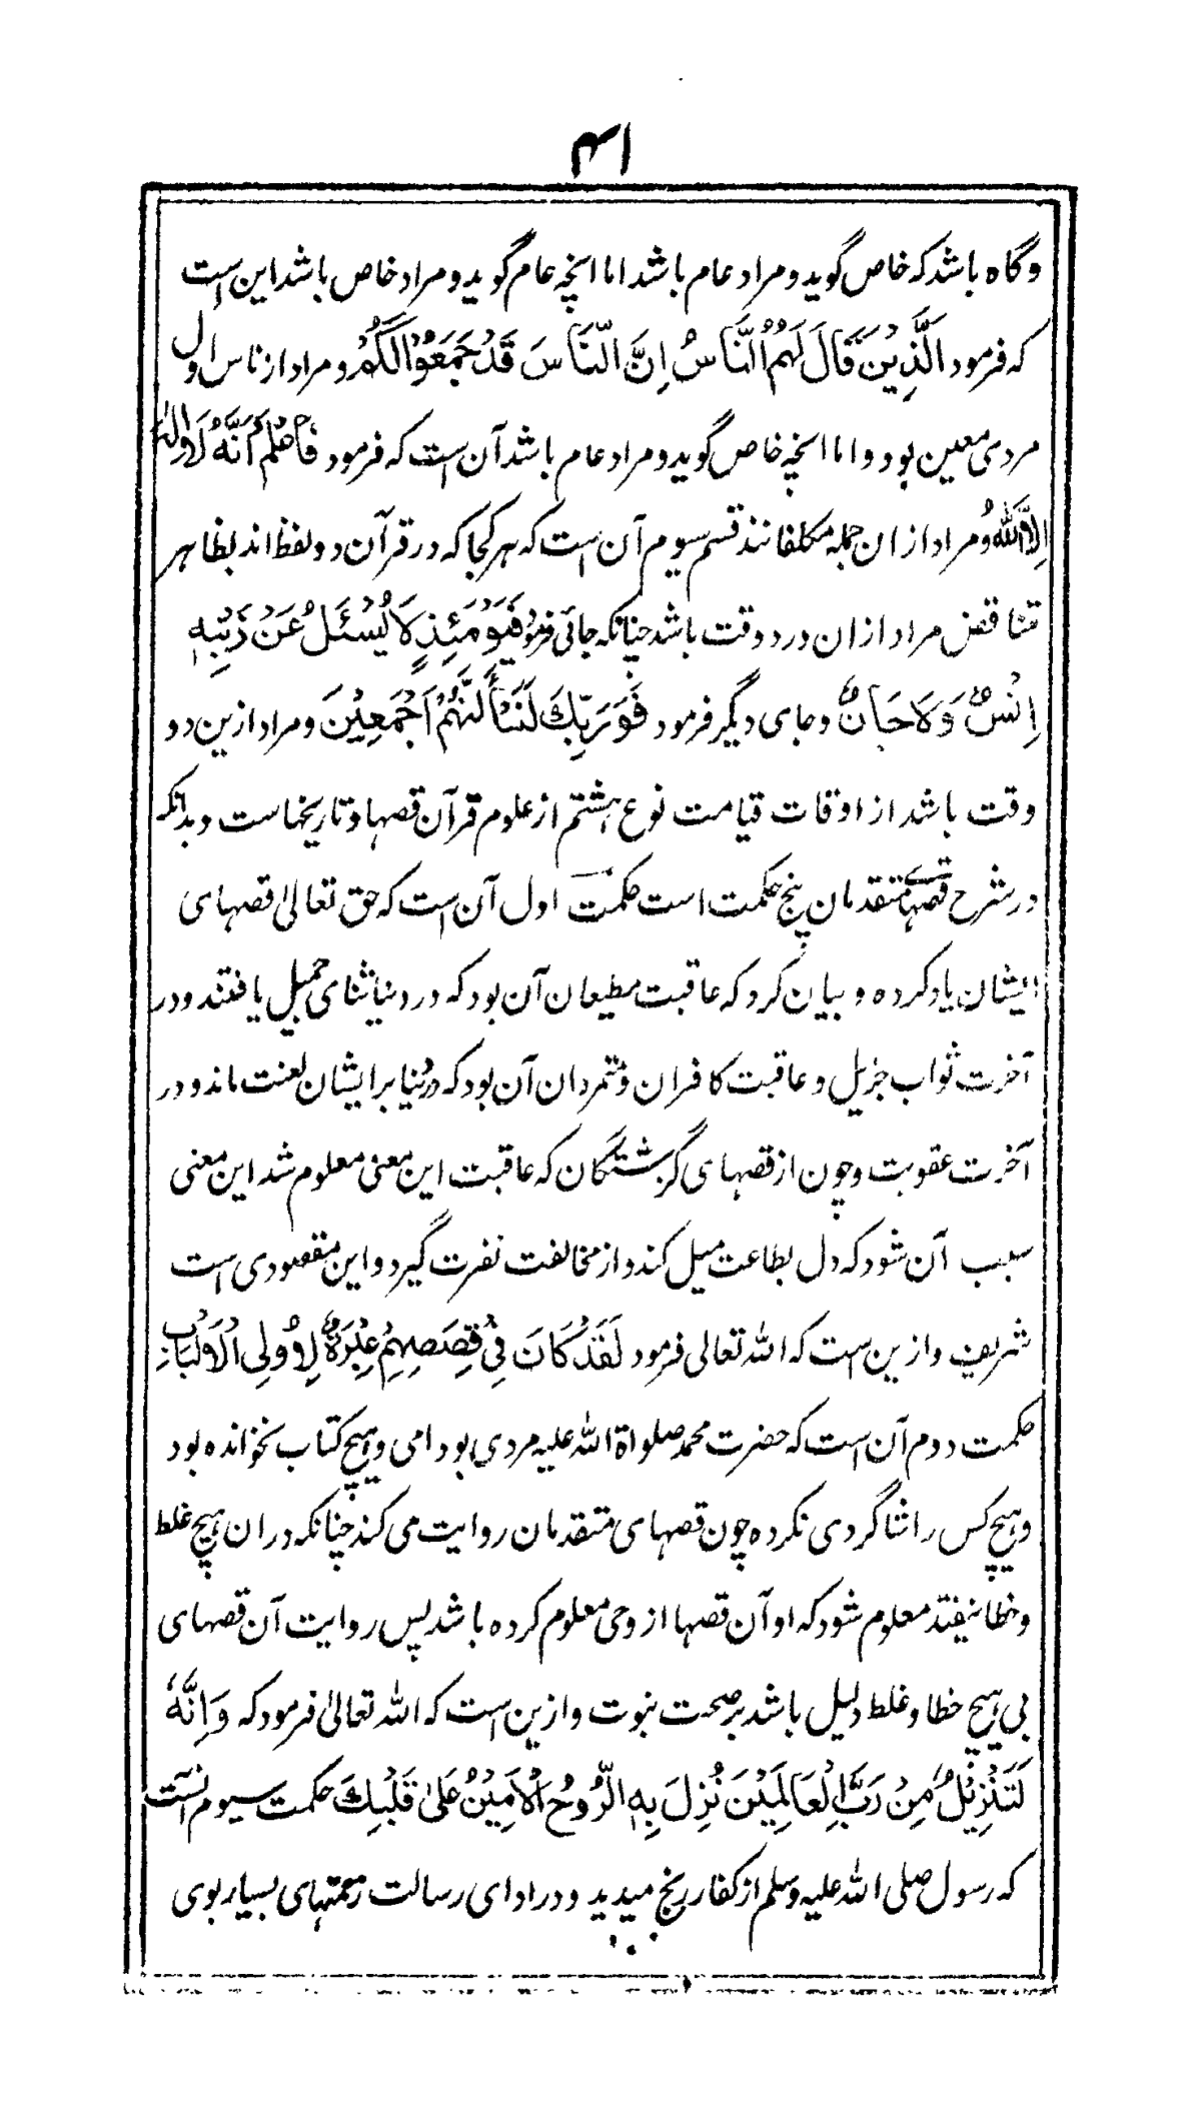 ۴۱
وگاه باشد که خاص گوید و مراد عام باشد اما انچه عام گوید و مراد خاص باشد این است
که فرمود اَلَّذِيْنَ قَالَ لَهُمُ النَّاسُ اِنَّ النَّاسَ قَدْ جَمَعُوْا لَكُمْ و مراد از ناس اول
مردی معین بود و اما انچه خاص گوید و مراد عام باشد آن است که فرمود فَاعْلَمْ اَنَّهُ لَا اِلٰهَ
اِلَّا اللّٰهُ و مراد ازان جمله مکلفانند قسم سیوم آن است که هر کجا که در قرآن دو لفظ اند بظاهر
متناقض مراد ازان در دو وقت باشد چنانکه جائی فرمود فَيَوْمَئِذٍ لَا يُسْئَلُ عَنْ ذَنْبِهٖ
اِنْسٌ وَلَا جَانٌّ وجای دیگر فرمود فَوَرَبِّكَ لَنَسْأَلَنَّهُمْ اَجْمَعِيْنَ و مراد ازین دو
وقت باشد از اوقات قیامت نوع هشتم از علوم قرآن قصها و تاریخهاست و بدانکه
در شرح قصهاے متقدمان پنج حکمت است حکمت اول آن است که حق تعالیٰ قصهای
ایشان یاد کرده و بیان کرد که عاقبت مطیعان آن بود که در دنیا ثنای جمیل یافتند و در
آخرت ثواب جزیل و عاقبت کافران و متمردان آن بود که در دنیا بر ایشان لعنت ماند و در
آخرت عقوبت و چون از قصهای گزشتگان که عاقبت این معنی معلوم شد این معنی
سبب آن شود که دل بطاعت میل کند و از مخالفت نفرت گیرد و این مقصودی است
شریف و ازین است که الله تعالی فرمود لَقَدْ كَانَ فِیْ قَصَصِهِمْ عِبْرَةٌ لِاُولِی الْاَلْبَابِ
حکمت دوم آن است که حضرت محمد صلواة الله علیه مردی بود امی و هیچ کتاب نخوانده بود
و هیچ کس را شاگردی نکرده چون قصهای متقدمان روایت می کند چنانکه دران هیچ غلط
و خطا نیفتد معلوم شود که او آن قصها از وحی معلوم کرده باشد پس روایت آن قصهای
بی هیچ خطا و غلط دلیل باشد بر صحت نبوت و ازین است که الله تعالیٰ فرمود که وَاِنَّهٗ
لَتَنْزِيْلُ مِنْ رَبِّ الْعَالَمِيْنَ نُزِلَ بِهِ الرُّوْحُ الْاَمِيْنُ عَلیٰ قَلْبِكَ حکمت سیوم آنست
که رسول صلی الله علیه وسلم از کفار رنج میدید و در ادای رسالت زحمتهای بسیار بوی